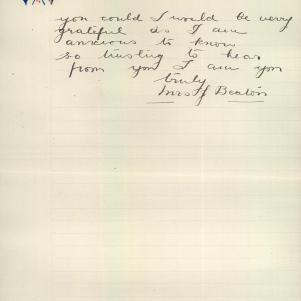 you could I would be very
grateful as I am
anxious to know
so trusting to hear
from you I am you
truly
Mrs J Beaton